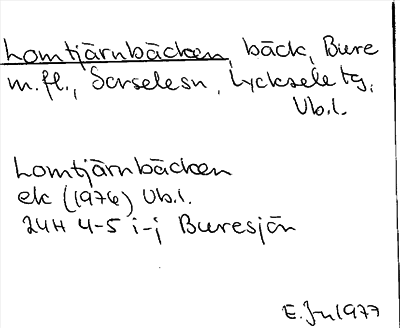 Lomtjärnbäcken, bäck, Bure
m.fl., Sorselesn, Lycksele tg,
Vb.l.
Lomtjärnbäcken
ek (1976) Vb.l.
24H 4-5 i-j Buresjön
E.Jn 1977